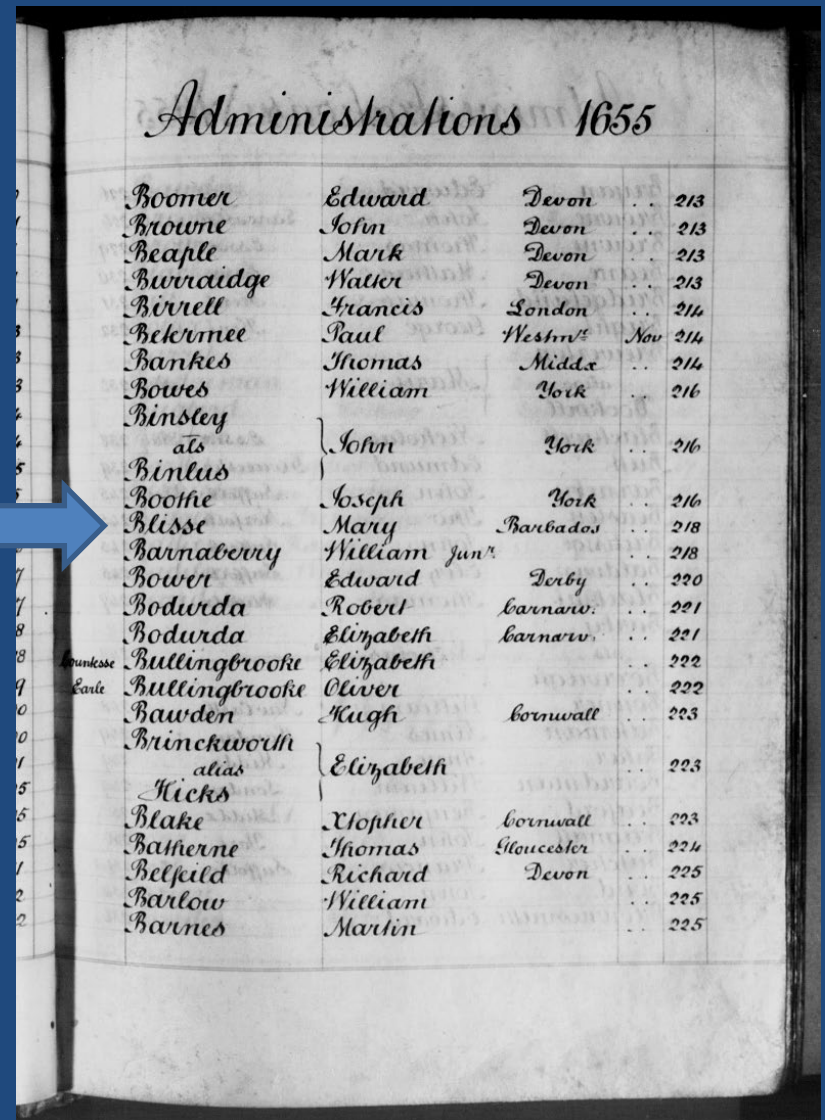 Administrations 1655
Boomer Edward Devon . . 213
Browne John Devon . . 213
Beaple Mark Devon . . 213
Burraidge Walter Devon . . 213
Birrell Francis London . . 214
Bekermee Paul Westmr Nov 214
Bankes Thomas Middx . . 214
Bowes William York . . 216
Binsley
als John York . . 216
Binlus
Boothe Joseph York . . 216
Blisse Mary Barbados . . 218
Barnaberry William Junr . . 218
Bower Edward Derby . . 220
Bodurda Robert Carnarv. . . 221
Bodurda Elizabeth Carnarv. . . 221
Countesse Bullingbrooke Elizabeth . . 222
Earle Bullingbrooke Oliver . . 222
Bawden Hugh Cornwall . . 223
Brinckworth
alias Elizabeth . . 223
Hicks
Blake Xtopher Cornwall . . 223
Batherne Thomas Gloucester . . 224
Belfeild Richard Devon . . 225
Barlow William . . 225
Barnes Martin . . 225